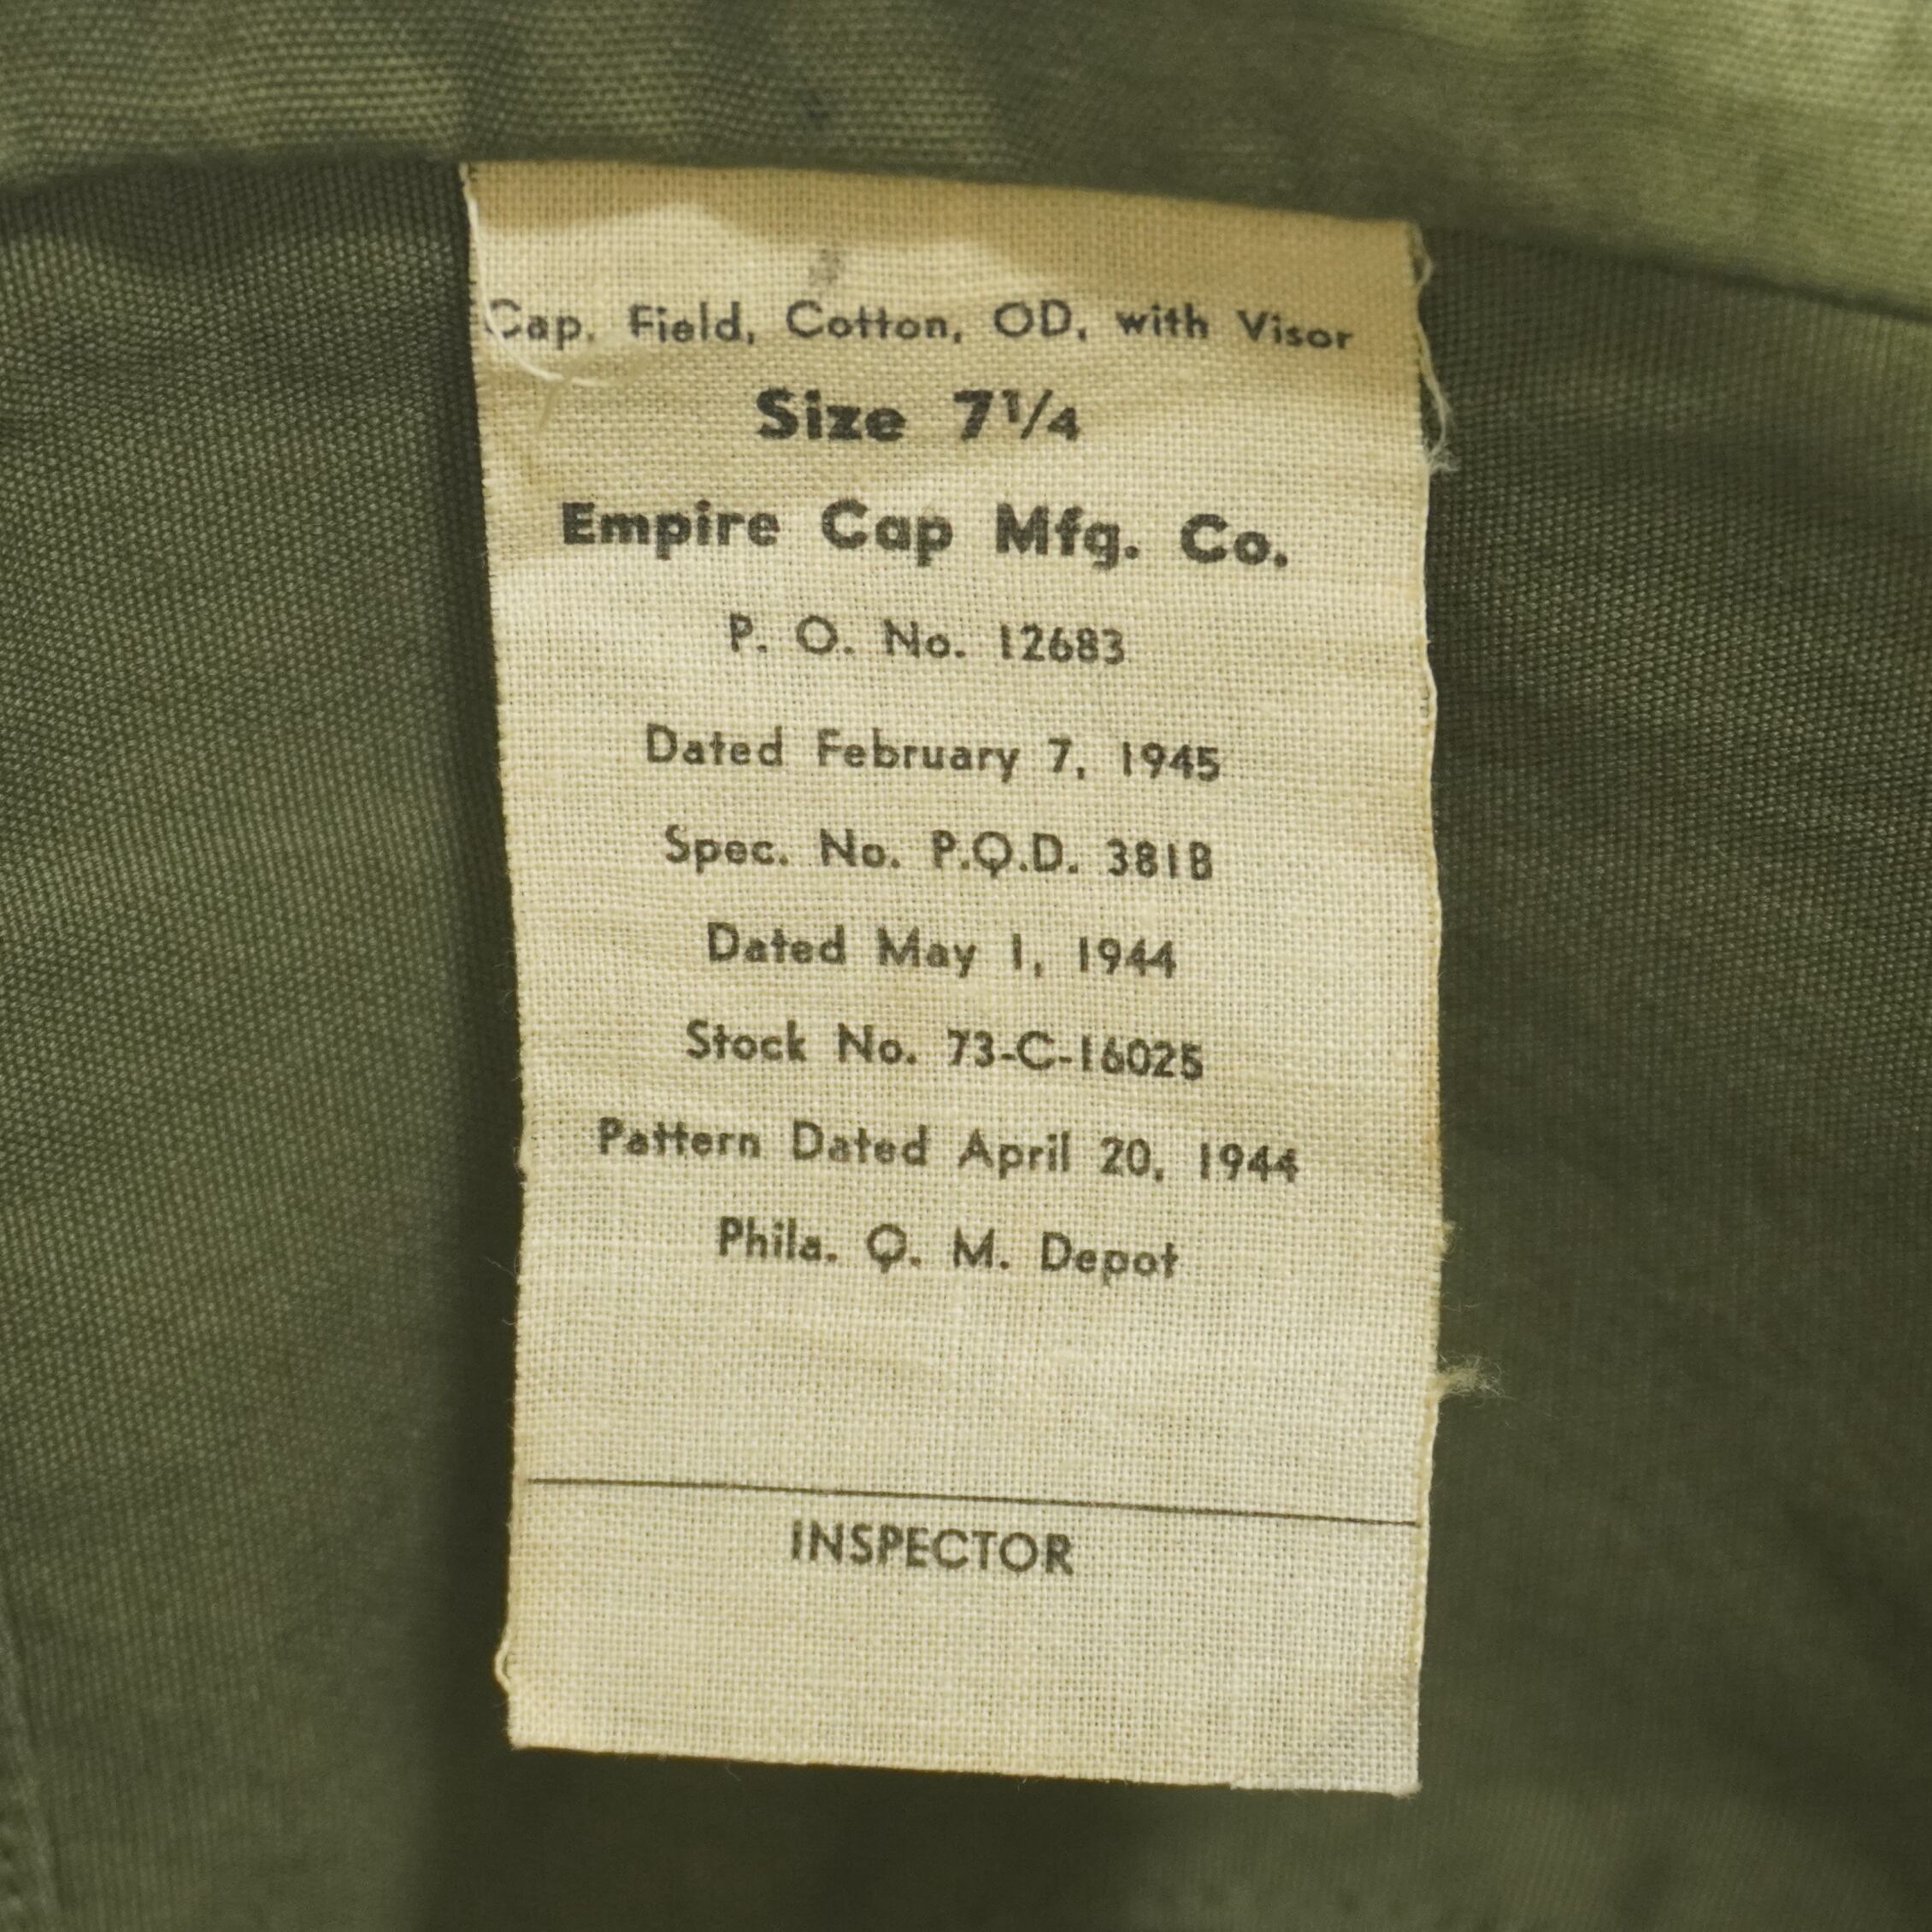 Cap, Field, Cotton, OD, with Visor
Size 7¼
Empire Cap Mfg. Co.
P. O. No. 12683
Dated February 7, 1945
Spec. No. P.Q.D. 381B
Dated May 1, 1944
Stock No. 73-C-16025
Pattern Dated April 20, 1944
Phila. Q. M. Depot
INSPECTOR